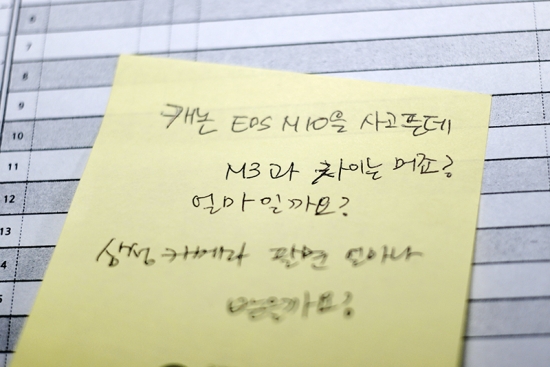 6
7
8
9
10
11
12
13
4
5
캐논 EOS M10을 사고픈데
M3과 차이는 머죠?
얼마일까요?
삼성 카메라 팔면 얼마나
받을까요?